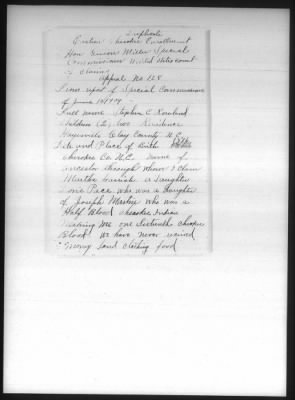 Duplicate
Eastern Cherokee Enrollment
Hon Guion Miller Special
Commissioner United States court
of claims
Appeal No 128
From report of Special Commissioner
of June 10/1909
Full name Stephen C Rowland
Children (2) two Residence
Hayesville Clay County N.C.
Date and Place of Birth
Cherokee Co. N.C. name of
ancestor through whom I claim
Martha a daughter
Pace who was a daughter
of Joseph who was a
Half Blood Cherokee Indian
making me one Sixteenth Cherokee
Blood We have never received
money land clothing food